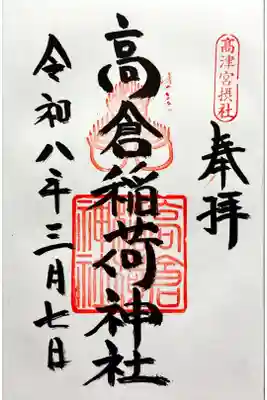 高津宮摂社
奉拝
高倉稲荷神社
高倉
神社
令和八年三月七日